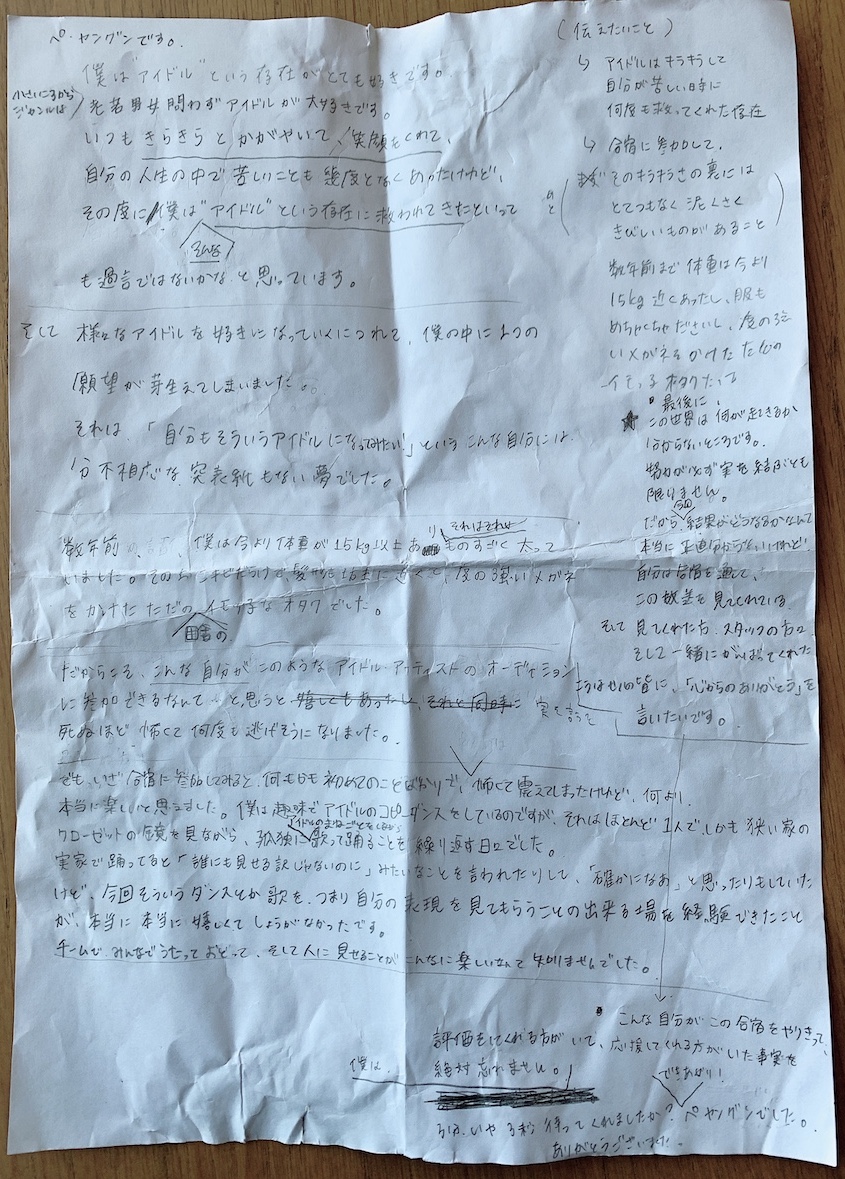 ペ・ヤングンです。
僕は"アイドル"という存在がとても好きです。
小さいころから
ジャンルは
老若男女問わずアイドルが大好きです。
いつもきらきらとかがやいて、笑顔をくれて、
自分の人生の中で苦しいことも幾度となくあったけれど、
その度に僕は"アイドル"という存在に救われてきたといって
そんな
も過言ではないかな と思っています。
そして 様々なアイドルを好きになっていくにつれて、僕の中に1つの
願望が芽生えてしまいました。
それは、「自分もそういうアイドルになってみたい!」という こんな自分には
分不相応な、突表紙もない夢でした。
数年前の 僕は今より体重が15kg以上あり
それはそれは
ものすごく太って
いました。 髪型も坊主に近くて、度の強いメガネ
をかけた ただの イモっ子なオタクでした。
田舎の
だからこそ、こんな自分がこのようなアイドル・アーティストのオーディション
に参加できるなんて と思うと 嬉しくもあったし、それと同時に 実を言うと
死ぬほど怖くて何度も逃げそうになりました。
でも、いざ合宿に参加してみると、何もかも初めてのことばかりで、怖くて震えてしまったけれど、何より、
本当に楽しいと思えました。僕は趣味でアイドルのコピーダンスをしているのですが、それはほとんど1人で、しかも狭い家の
アイドルのまねごとをしながら
クローゼットの鏡を見ながら、孤独に歌って踊ることを繰り返す日々でした。
実家で踊ってると「誰にも見せる訳じゃないのに」みたいなことを言われたりして、「確かになあ」と思ったりもしていた
けど、今回そういうダンスとか歌を、つまり自分の表現を見てもらうことの出来る場を経験できたこと
が、本当に本当に嬉しくてしょうがなかったです。
チームで、みんなでうたっておどって、そして人に見せることがこんなに楽しいなんて知りませんでした。
(伝えたいこと)
↳ アイドルはキラキラして
自分が苦しい時に
何度も救ってくれた存在
↳ 合宿に参加して、
そのキラキラさの裏には
とてつもなく泥くさく
きびしいものがあること
数年前まで体重は今より
15kg近くあったし、服も
めちゃくちゃださいし、度の強
いメガネをかけた ただの
イモっ子オタクだった
・最後に、
★ この世界は何が起きるか
分からないところです。
努力が必ず実を結ぶとも
限りません。
今回
だから、結果がどうなるかなんて
本当に正直分からないけれど
自分は合宿を通して、
この放送を見てくれている
そして 見てくれた方、スタッフの方々、
そして一緒にがんばってくれた
こうほせいの皆に、「心からのありがとう」を
言いたいです。
・こんな自分がこの合宿をやりきって、
評価をしてくれる方がいて、応援してくれる方がいた事実を
僕は
絶対忘れません。
できあがり!
3分、いや 3秒 待ってくれましたか? ペ ヤングンでした。
ありがとうございました。